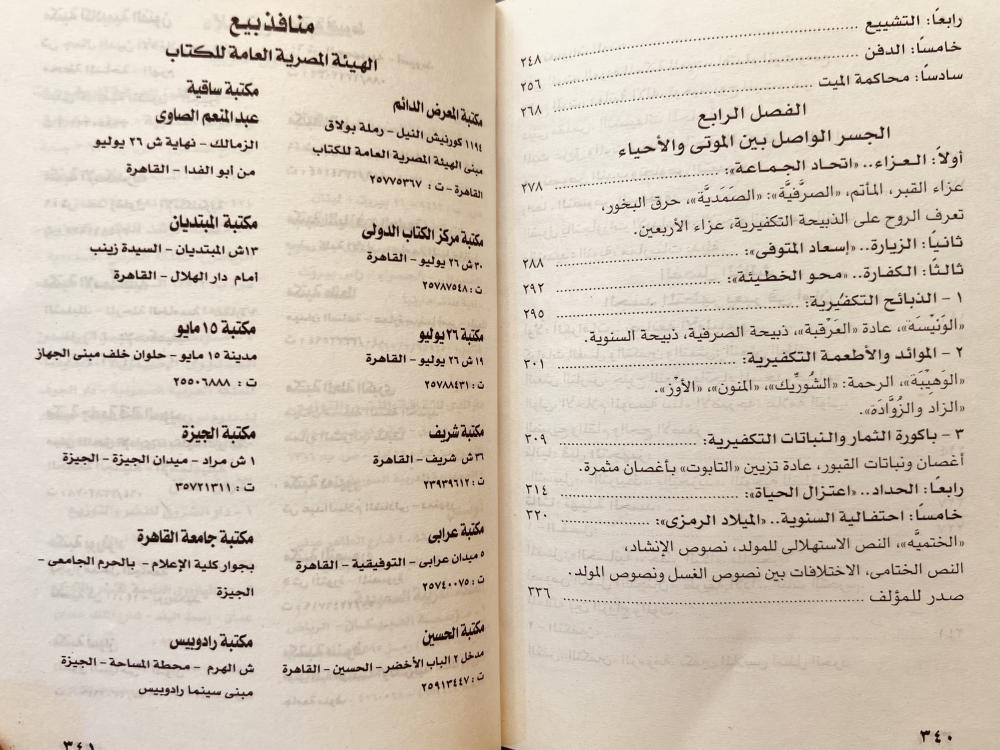 رابعًا: التشييع
خامسًا: الدفن ٢٤٨
سادسًا: محاكمة الميت ٢٥٦
٢٦٨
الفصل الرابع
الجسر الواصل بين الموتى والأحياء
أولاً: العزاء.. «اتحاد الجماعة»: ٢٧٨
عزاء القبر، المأتم، «الصرَّفيَّة»: «الصمَديَّة»، حرق البخور،
تعرف الروح على الذبيحة التكفيرية، عزاء الأربعين.
ثانيًا: الزيارة.. «إسعاد المتوفى»: ٢٨٨
ثالثًا: الكفارة.. «محو الخطيئة»: ٢٩٢
١ - الذبائح التكفيرية: ٢٩٥
«الوَنيْسَة»، عادة «العَرْقبة»، ذبيحة الصرفية، ذبيحة السنوية.
٢ - الموائد والأطعمة التكفيرية: ٣٠١
«الوَهيْبَة»، الرحمة: «الشُوريْك»، «المنون»، «الأوْز»،
«الزاد والزُوَّادَة».
٣ - باكورة الثمار والنباتات التكفيرية: ٣٠٩
أغصان ونباتات القبور، عادة تزيين «التابوت» بأغصان مثمرة.
رابعًا: الحداد.. «اعتزال الحياة»: ٣١٤
خامسًا: احتفالية السنوية.. «الميلاد الرمزى»: ٣٢٠
«الختميَّة»، النص الاستهلالى للمولد، نصوص الإنشاد،
النص الختامى، الاختلافات بين نصوص الغسل ونصوص المولد.
صدر للمؤلف ٣٣٦
٣٤٠
منافذ بيع
الهيئة المصرية العامة للكتاب
مكتبة المعرض الدائم
١١٩٤ كورنيش النيل - رملة بولاق
مبنى الهيئة المصرية العامة للكتاب
القاهرة - ت : ٢٥٧٧٥٣٦٧
مكتبة مركز الكتاب الدولى
٣٠ ش ٢٦ يوليو - القاهرة
ت : ٢٥٧٨٧٥٤٨
مكتبة ٢٦ يوليو
١٩ ش ٢٦ يوليو - القاهرة
ت : ٢٥٧٨٨٤٣١
مكتبة شريف
٣٦ ش شريف - القاهرة
ت : ٢٣٩٣٩٦١٢
مكتبة عرابى
٥ ميدان عرابى - التوفيقية - القاهرة
ت : ٢٥٧٤٠٠٧٥
مكتبة الحسين
مدخل ٢ الباب الأخضر - الحسين - القاهرة
ت : ٢٥٩١٣٤٤٧
مكتبة ساقية
عبدالمنعم الصاوى
الزمالك - نهاية ش ٢٦ يوليو
من أبو الفدا - القاهرة
مكتبة المبتديان
١٣ش المبتديان - السيدة زينب
أمام دار الهلال - القاهرة
مكتبة ١٥ مايو
مدينة ١٥ مايو - حلوان خلف مبنى الجهاز
ت : ٢٥٥٠٦٨٨٨
مكتبة الجيزة
١ ش مراد - ميدان الجيزة - الجيزة
ت : ٣٥٧٢١٣١١
مكتبة جامعة القاهرة
بجوار كلية الإعلام - بالحرم الجامعى -
الجيزة
مكتبة رادوبيس
ش الهرم - محطة المساحة - الجيزة
مبنى سينما رادوبيس
٣٤١